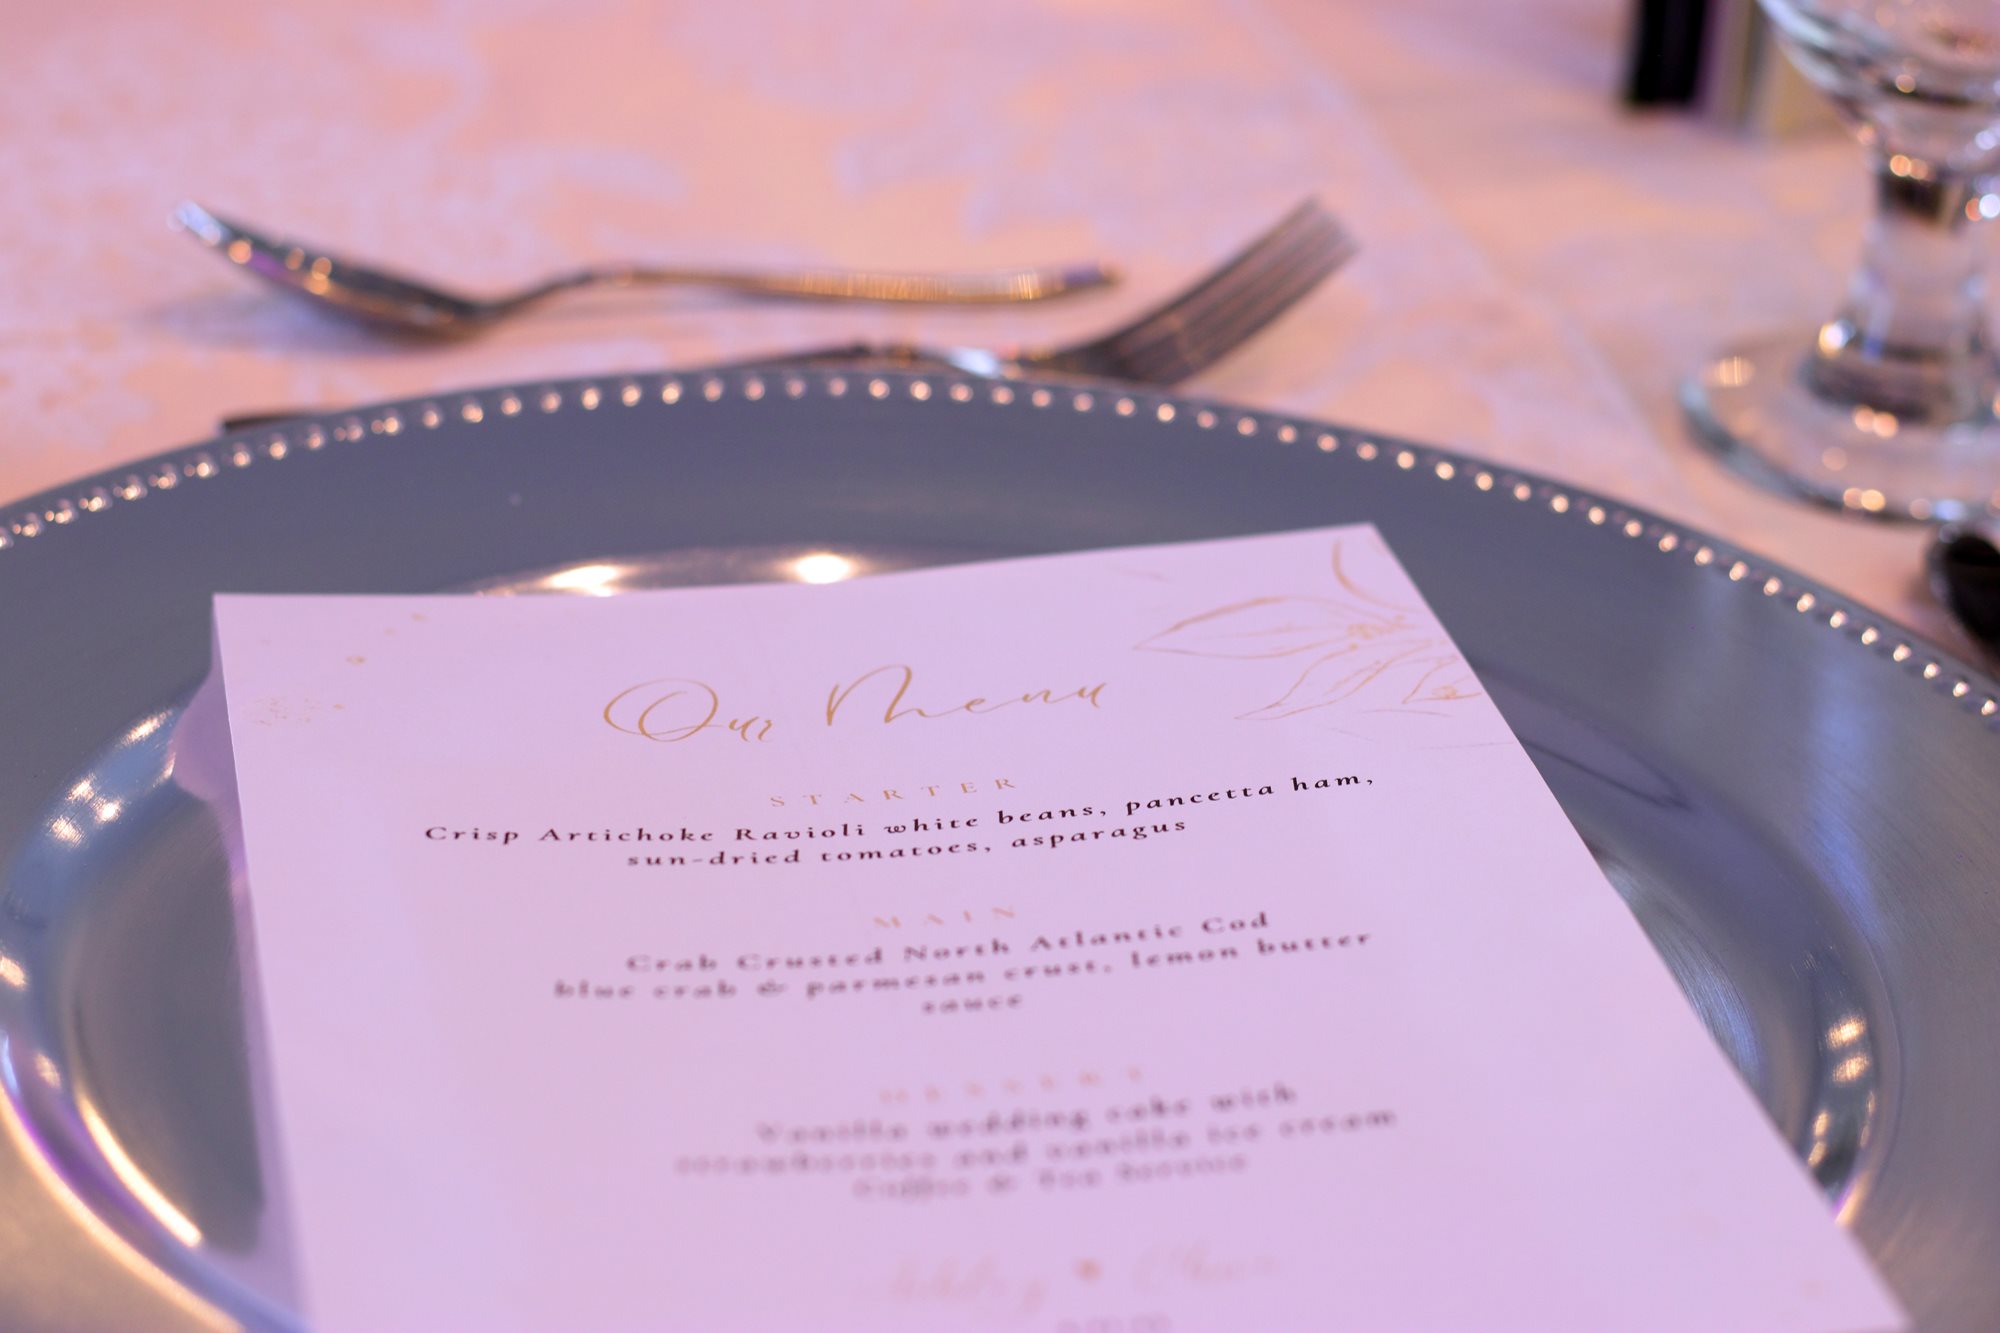 Our Menu
STARTER
Crisp Artichoke Ravioli white beans, pancetta ham,
sun-dried tomatoes, asparagus
MAIN
Crab Crusted North Atlantic Cod
blue crab & parmesan crust, lemon butter
sauce
DESSERT
Vanilla wedding cake with
strawberries and vanilla ice cream
Coffee & Tea Service